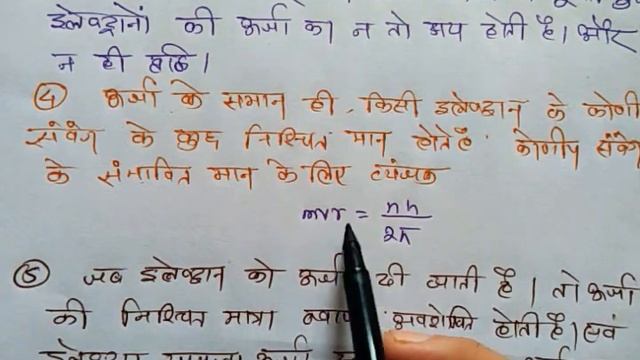 इलेक्ट्रोनों की ऊर्जा का न तो क्षय होती है। और
न ही वृद्धि।
④ ऊर्जा के समान ही, किसी इलेक्ट्रान के कोणी
संवेग के कुछ निश्चित मान होते हैं. कोणीय संवेग
के संभावित मान के लिए व्यंजक
mvr = nh/2π
⑤ जब इलेक्ट्रान को ऊर्जा दी जाती है। तो ऊर्जा
की निश्चित मात्रा अवशोषित होती है। एवं